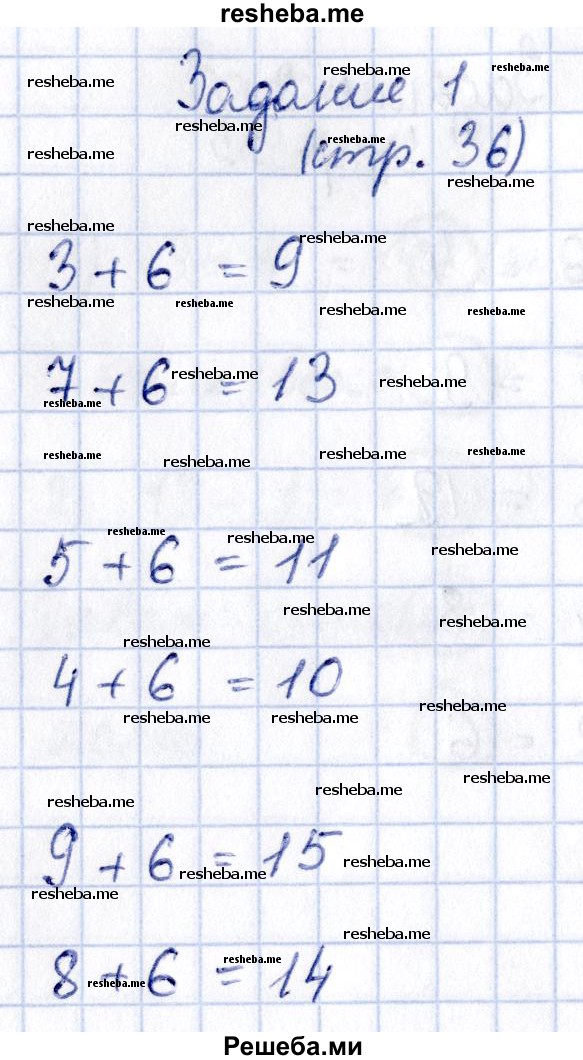 resheba.me
resheba.me resheba.me resheba.me
Задание 1
resheba.me
resheba.me resheba.me
(стр. 36)
resheba.me
resheba.me
resheba.me
3 + 6 = 9
resheba.me resheba.me resheba.me resheba.me
resheba.me resheba.me
7 + 6 = 13
resheba.me
resheba.me resheba.me resheba.me resheba.me
resheba.me resheba.me resheba.me
5 + 6 = 11
resheba.me resheba.me
resheba.me
4 + 6 = 10
resheba.me resheba.me resheba.me
resheba.me resheba.me resheba.me
9 + 6 = 15
resheba.me resheba.me
resheba.me
resheba.me
resheba.me
8 + 6 = 14
resheba.me
Решеба.ми